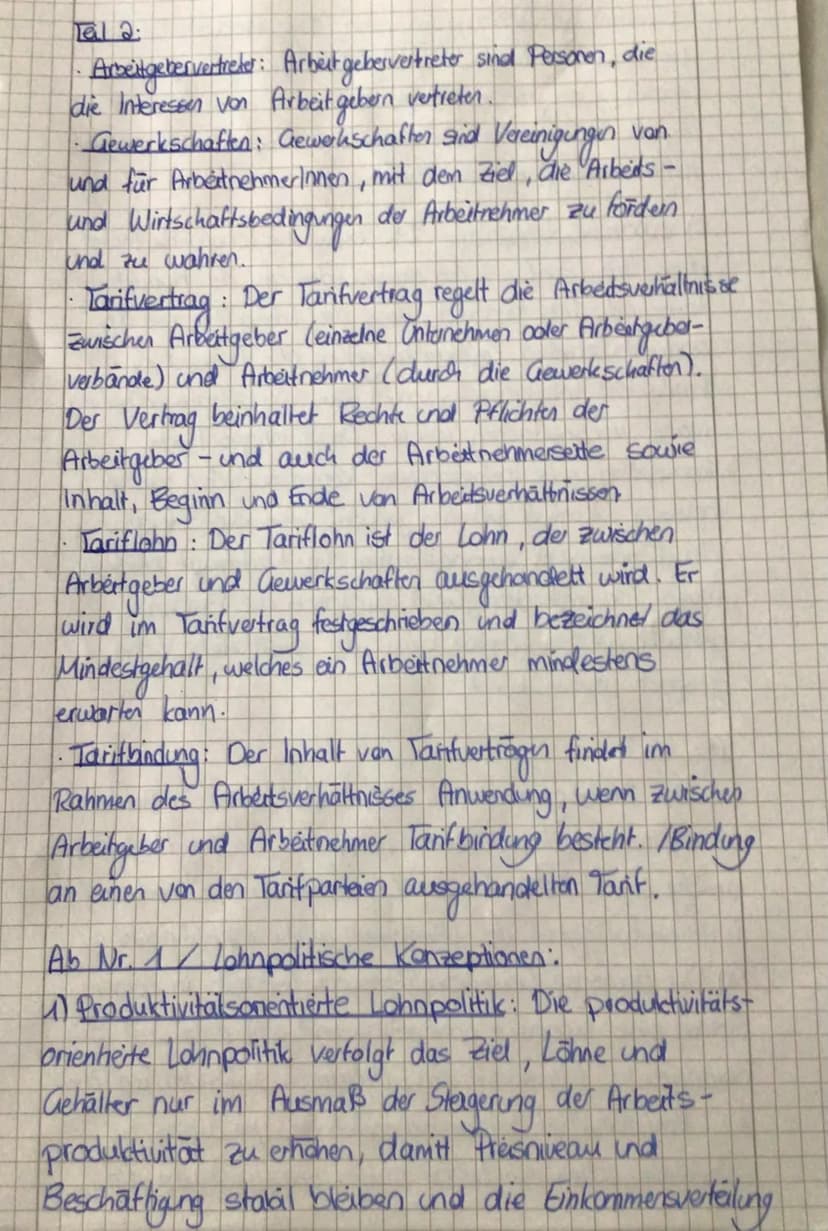 Teil 2:
· Arbeitgebervertreter: Arbeitgebervertreter sind Personen, die
die Interessen von Arbeitgebern vertreten.
· Gewerkschaften: Gewerkschaften sind Vereinigungen von
und für ArbeitnehmerInnen, mit dem Ziel, die Arbeits-
und Wirtschaftsbedingungen der Arbeitnehmer zu fördern
und zu wahren.
· Tarifvertrag: Der Tarifvertrag regelt die Arbeitsverhältnisse
zwischen Arbeitgeber (einzelne Unternehmen oder Arbeitgeber-
verbände) und Arbeitnehmer (durch die Gewerkschaften).
Der Vertrag beinhaltet Rechte und Pflichten der
Arbeitgeber- und auch der Arbeitnehmerseite sowie
Inhalt, Beginn und Ende von Arbeitsverhältnissen
· Tariflohn: Der Tariflohn ist der Lohn, der zwischen
Arbeitgeber und Gewerkschaften ausgehandelt wird. Er
wird im Tarifvertrag festgeschrieben und bezeichnet das
Mindestgehalt, welches ein Arbeitnehmer mindestens
erwarten kann.
· Tarifbindung: Der Inhalt von Tarifverträgen findet im
Rahmen des Arbeitsverhältnisses Anwendung, wenn zwischen
Arbeitgeber und Arbeitnehmer Tarifbindung besteht. /Bindung
an einen von den Tarifparteien ausgehandelten Tarif.
Ab Nr. 1 / Lohnpolitische Konzeptionen:
1) Produktivitätsorientierte Lohnpolitik: Die produktivitäts-
orientierte Lohnpolitik verfolgt das Ziel, Löhne und
Gehälter nur im Ausmaß der Steigerung der Arbeits-
produktivität zu erhöhen, damit Preisniveau und
Beschäftigung stabil bleiben und die Einkommensverteilung